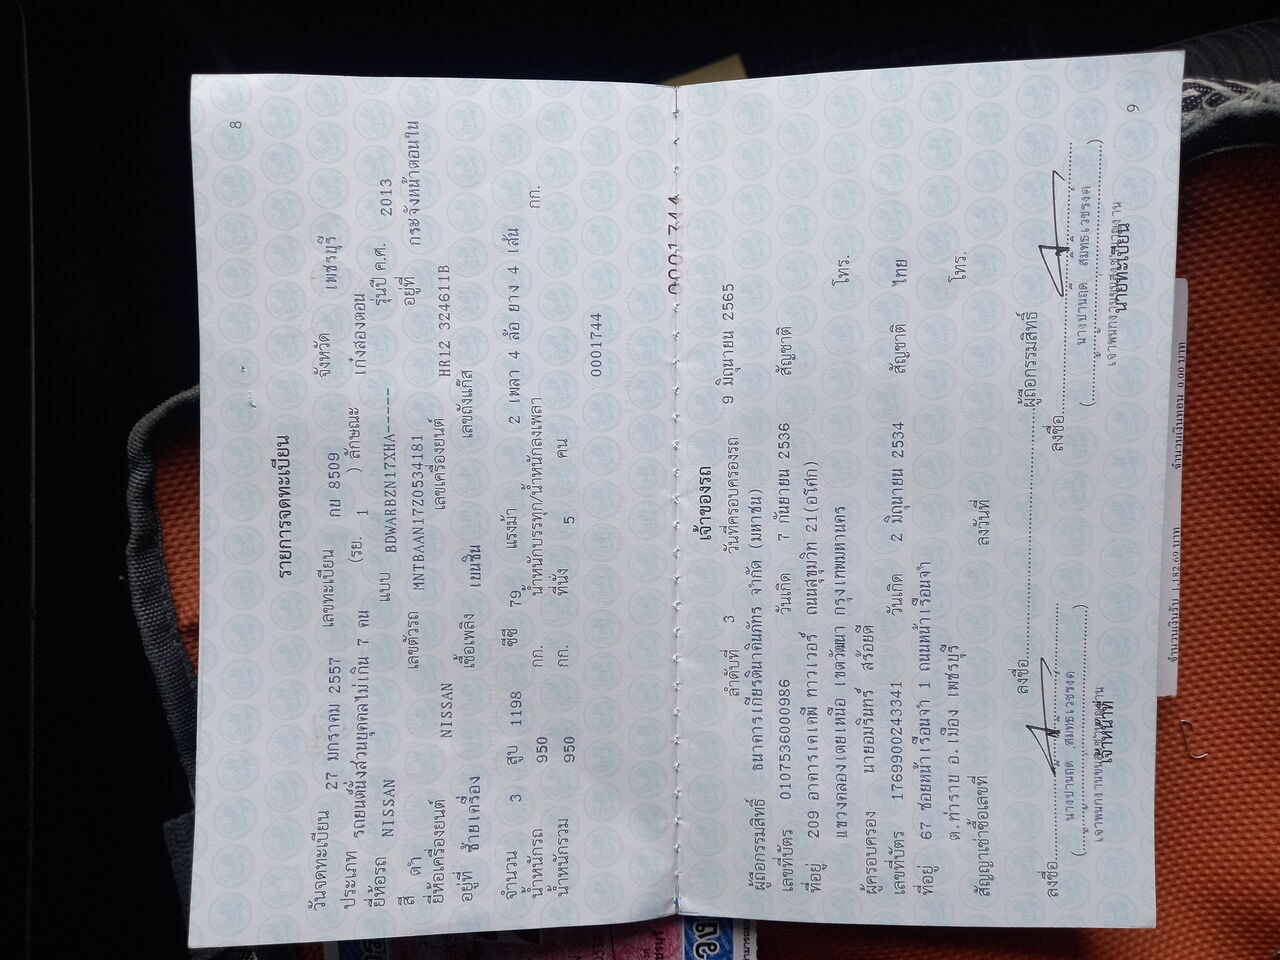 8
รายการจดทะเบียน
วันจดทะเบียน 27 มกราคม 2557 เลขทะเบียน กบ 8509 จังหวัด เพชรบุรี
ประเภท รถยนต์นั่งส่วนบุคคลไม่เกิน 7 คน (รย. 1 ) ลักษณะ เก๋งสองตอน
ยี่ห้อรถ NISSAN แบบ BDWARBZN17XHA----- รุ่นปี ค.ศ. 2013
สี ดำ เลขตัวรถ MNTBAAN17Z0534181 อยู่ที่ กระจังหน้าตอนใน
ยี่ห้อเครื่องยนต์ NISSAN เลขเครื่องยนต์ HR12 324611B
อยู่ที่ ซ้ายเครื่อง เชื้อเพลิง เบนซิน เลขถังแก๊ส
จำนวน 3 สูบ 1198 ซีซี 79 แรงม้า 2 เพลา 4 ล้อ ยาง 4 เส้น
น้ำหนักรถ 950 กก. น้ำหนักบรรทุก/น้ำหนักลงเพลา กก.
น้ำหนักรวม 950 กก. ที่นั่ง 5 คน
0001744
0001744
เจ้าของรถ
ลำดับที่ 3 วันที่ครอบครองรถ 9 มิถุนายน 2565
ผู้ถือกรรมสิทธิ์ ธนาคารเกียรตินาคินภัทร จำกัด (มหาชน)
เลขที่บัตร 0107536000986 วันเกิด 7 กันยายน 2536 สัญชาติ
ที่อยู่ 209 อาคารเคเคพี ทาวเวอร์ ถนนสุขุมวิท 21(อโศก)
แขวงคลองเตยเหนือ เขตวัฒนา กรุงเทพมหานคร โทร.
ผู้ครอบครอง นายอมรินทร์ สร้อยดี
เลขที่บัตร 1769900243341 วันเกิด 2 มิถุนายน 2534 สัญชาติ ไทย
ที่อยู่ 67 ซอยหน้าเรือนจำ 1 ถนนหน้าเรือนจำ
ต.ท่าราบ อ.เมือง เพชรบุรี โทร.
สัญญาเช่าซื้อเลขที่ ลงวันที่
ลงชื่อ ผู้ถือกรรมสิทธิ์
ลงชื่อ ลงชื่อ
เจ้าหน้าที่ นายทะเบียน
9
จำนวนเงินรับ 1,182.69 บาท จำนวนเงินทอน 0.00 บาท